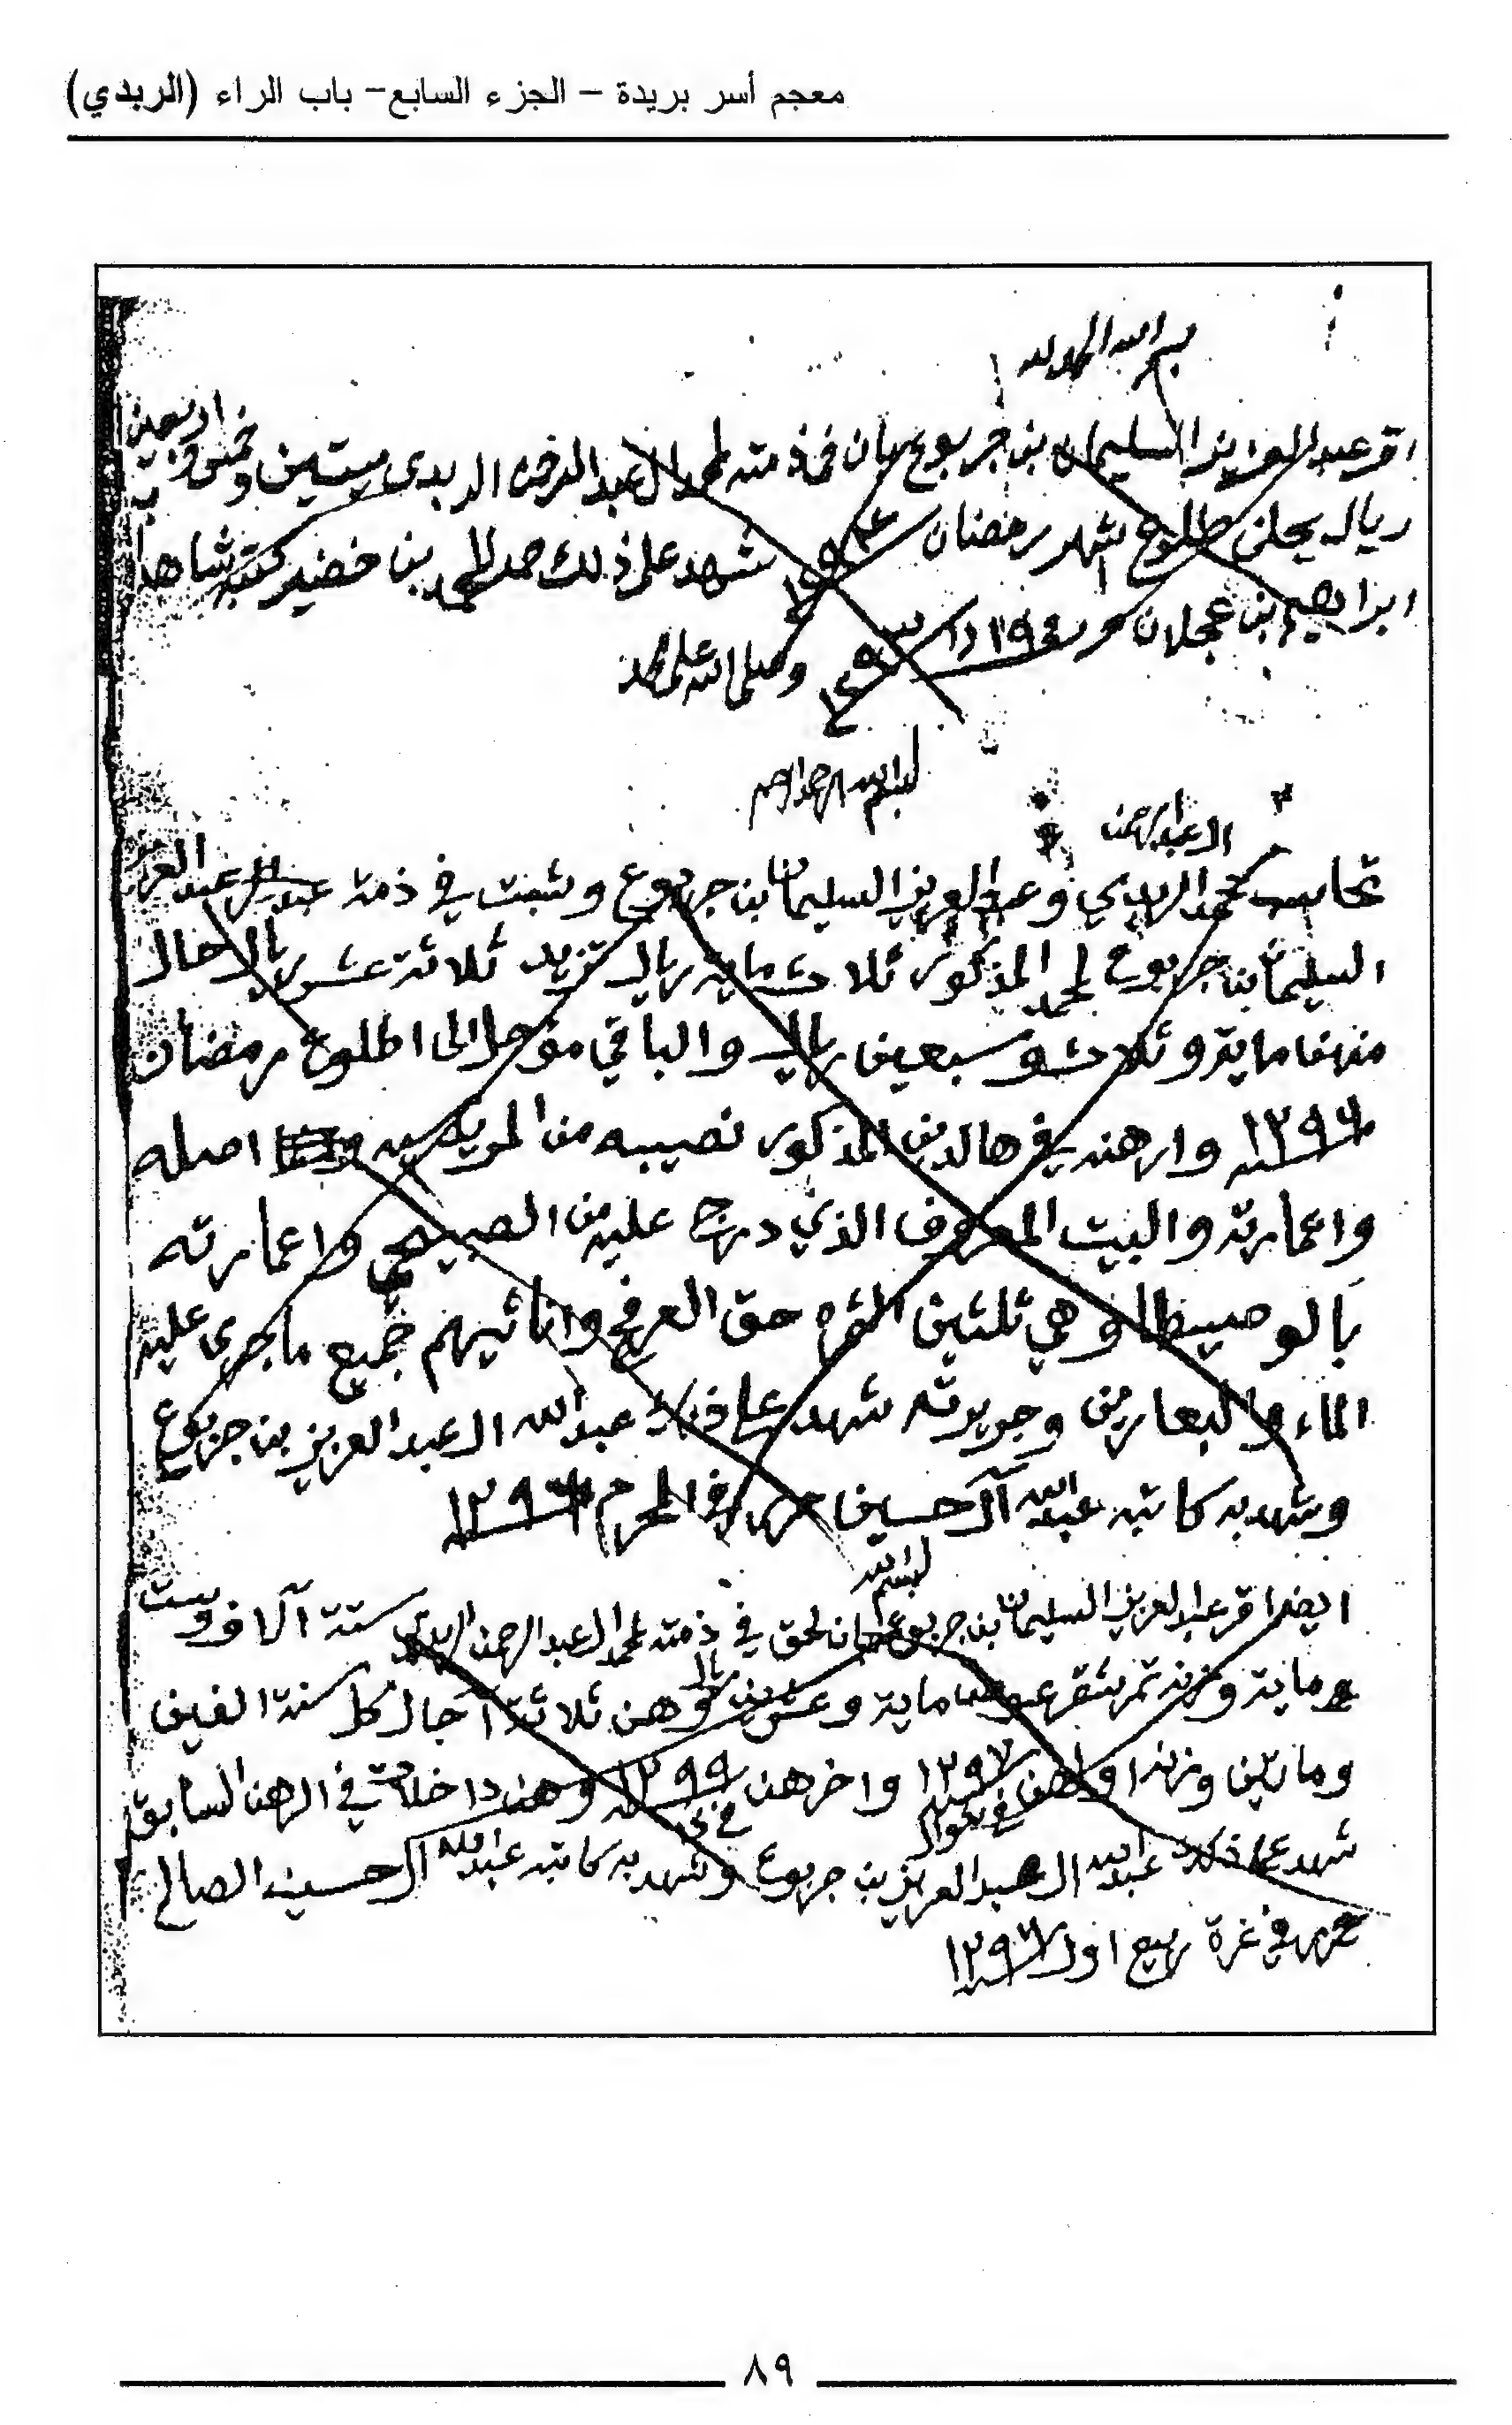 معجم أسر بريدة – الجزء السابع– باب الراء (الربدي)
بسم الله الحمد لله
اقر عبد العزيز السليمان بن جربوع بان في ذمته لمحمد ال عبد الرحمن الربدي ميتين وخمس واربعين
ريال يحلن طلوع شهر رمضان شهد على ذلك حمد بن خضير كتبه شاهدا
ابراهيم بن عجلان حرر في ١٩ وصلى الله على محمد
بسم الله الرحمن الرحيم
ال عبد الرحمن
تحاسب محمد الربدي وعبد العزيز السليمان بن جربوع وثبت في ذمة عبد العزيز
السليمان بن جربوع لمحمد المذكور ثلاث ماية ريال تزيد ثلاثة عشر ريال حال
منهن ماية وثلاث وسبعين ريال والباقي مؤجل الى اطلوع رمضان
١٢٩٦ وارهنه في هالدين المذكور نصيبه من المريكسيه اصله
واعمارته والبيت المعروف الذي درج عليه من الصبيحي واعمارته
بالوسيطا وهي ثلثين الثمره حق العرفج وانا ثيهم جميع ماجرى عليه
الماء والبعارين وجريرته شهد على ذلك عبد الله ال عبد العزيز بن جربوع
وشهد به كاتبه عبد الله آل حسين حرر في المحرم ١٢٩٦
بسم الله
ايضا اقر عبد العزيز السليمان بن جربوع بان لحق في ذمته لمحمد ال عبد الرحمن الربدي ستة آلاف وست
ماية وزنه تمر شقر عوض ماية وعشرين ريال وهن ثلاثة آجال كل سنة الفين
وماتين وزنه اولهن ١٢٩٧ واخرهن ١٢٩٩ وهن داخلات في الرهن السابق
شهد على ذلك عبد الله ال عبد العزيز بن جربوع وشهد به كاتبه عبد الله ال حسين الصالح
حرر في غرة ربيع اول ١٢٩٦
٨٩